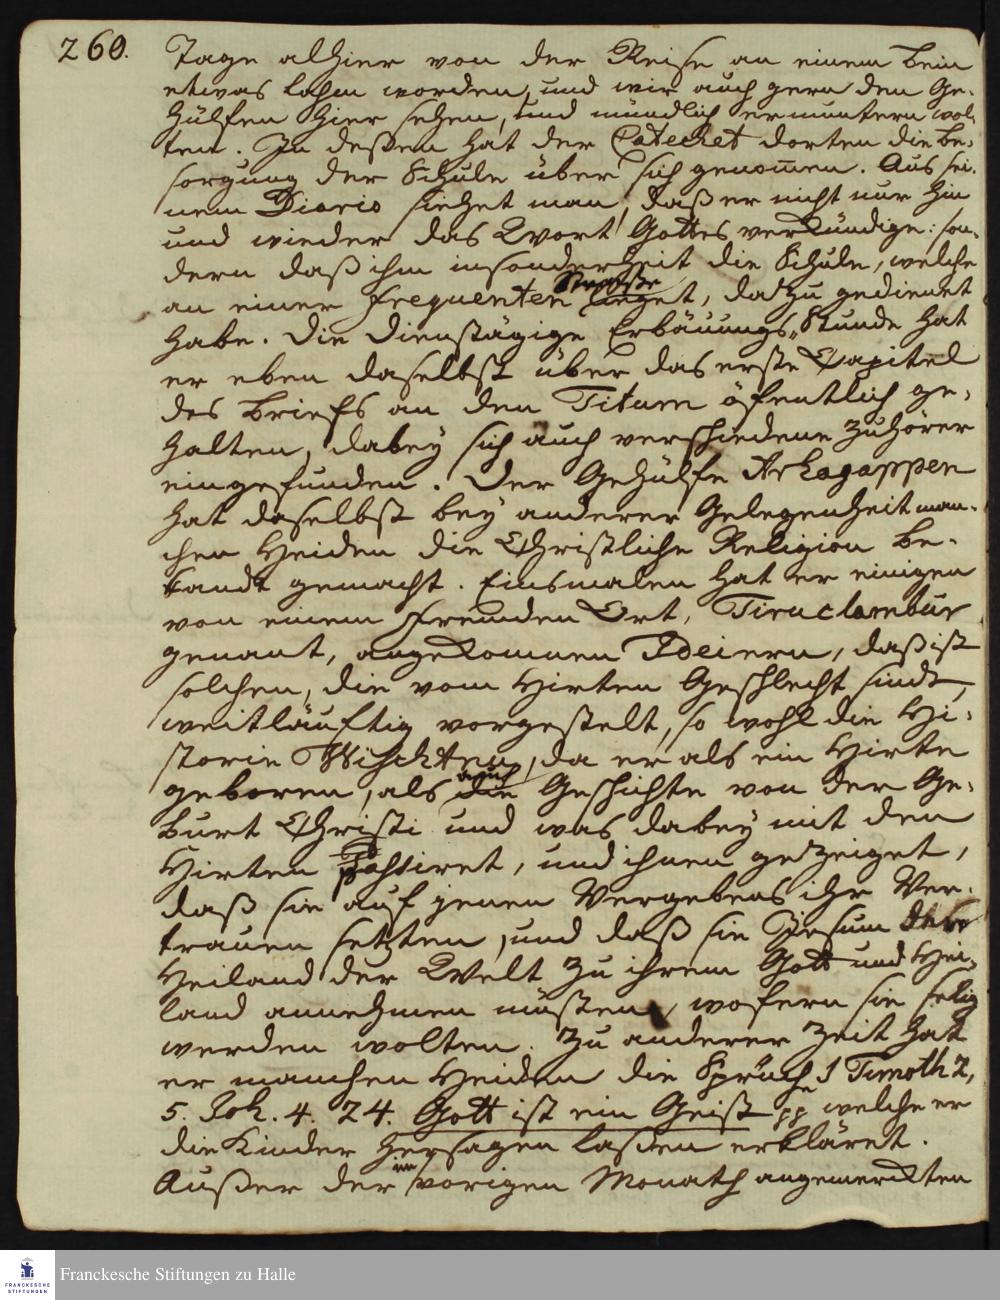 260.
Tage alhier von der Reise an einem Bein
etwas lahm worden, und wir auch gern den Ge-
hülfen hier sehen, und mündlich ermuntern wol-
ten. In deßen hat der Catechet dorten die Be-
sorgung der Schule über sich genom̄en. Aus sei-
nem Diario siehet man, daß er nicht nur hin
und wieder das Wort Gottes verkündige: son-
dern daß ihm insonderheit die Schule, welche
an einer frequenten Strasse lieget, dazu gedienet
habe. Die Dienstägige Erbauungs-Stunde hat
er eben daselbst über das erste Capitel
des Briefs an den Titum öfentlich ge-
halten, dabey sich auch verschiedene Zuhörer
eingefunden. Der Gehülfe Arhagappen
hat daselbst bey anderer Gelegenheit man-
chen Heiden die Christliche Religion be-
kandt gemacht. Einsmalen hat er einigen
von einem fremden Ort, Tiruclambur
genant, angekommen Ideiern, daß ist
solchen, die vom Hirten Geschlecht sindt,
weitläuftig vorgestelt, so wohl die Hi-
storie Wischtnu, da er als ein Hirte
geboren, als auch die Geschichte von der Ge-
burt Christi und was dabey mit den
Hirten passiret, und ihnen gezeiget,
daß sie auf jenen Vergebens ihr Ver-
trauen setzten, und daß sie Jesum den
Heiland der Welt zu ihrem Gott und Hei-
land annehmen müsten, wofern sie selig
werden wolten. Zu anderer Zeit hat
er manchen Heiden die Sprüche 1 Timoth 2,
5. Joh. 4. 24. Gott ist ein Geist pp welche er
die Kinder hersagen laßen erkläret.
Außer der im vorigen Monath angemerckten
FRANCKESCHE
STIFTUNGEN
Franckesche Stiftungen zu Halle